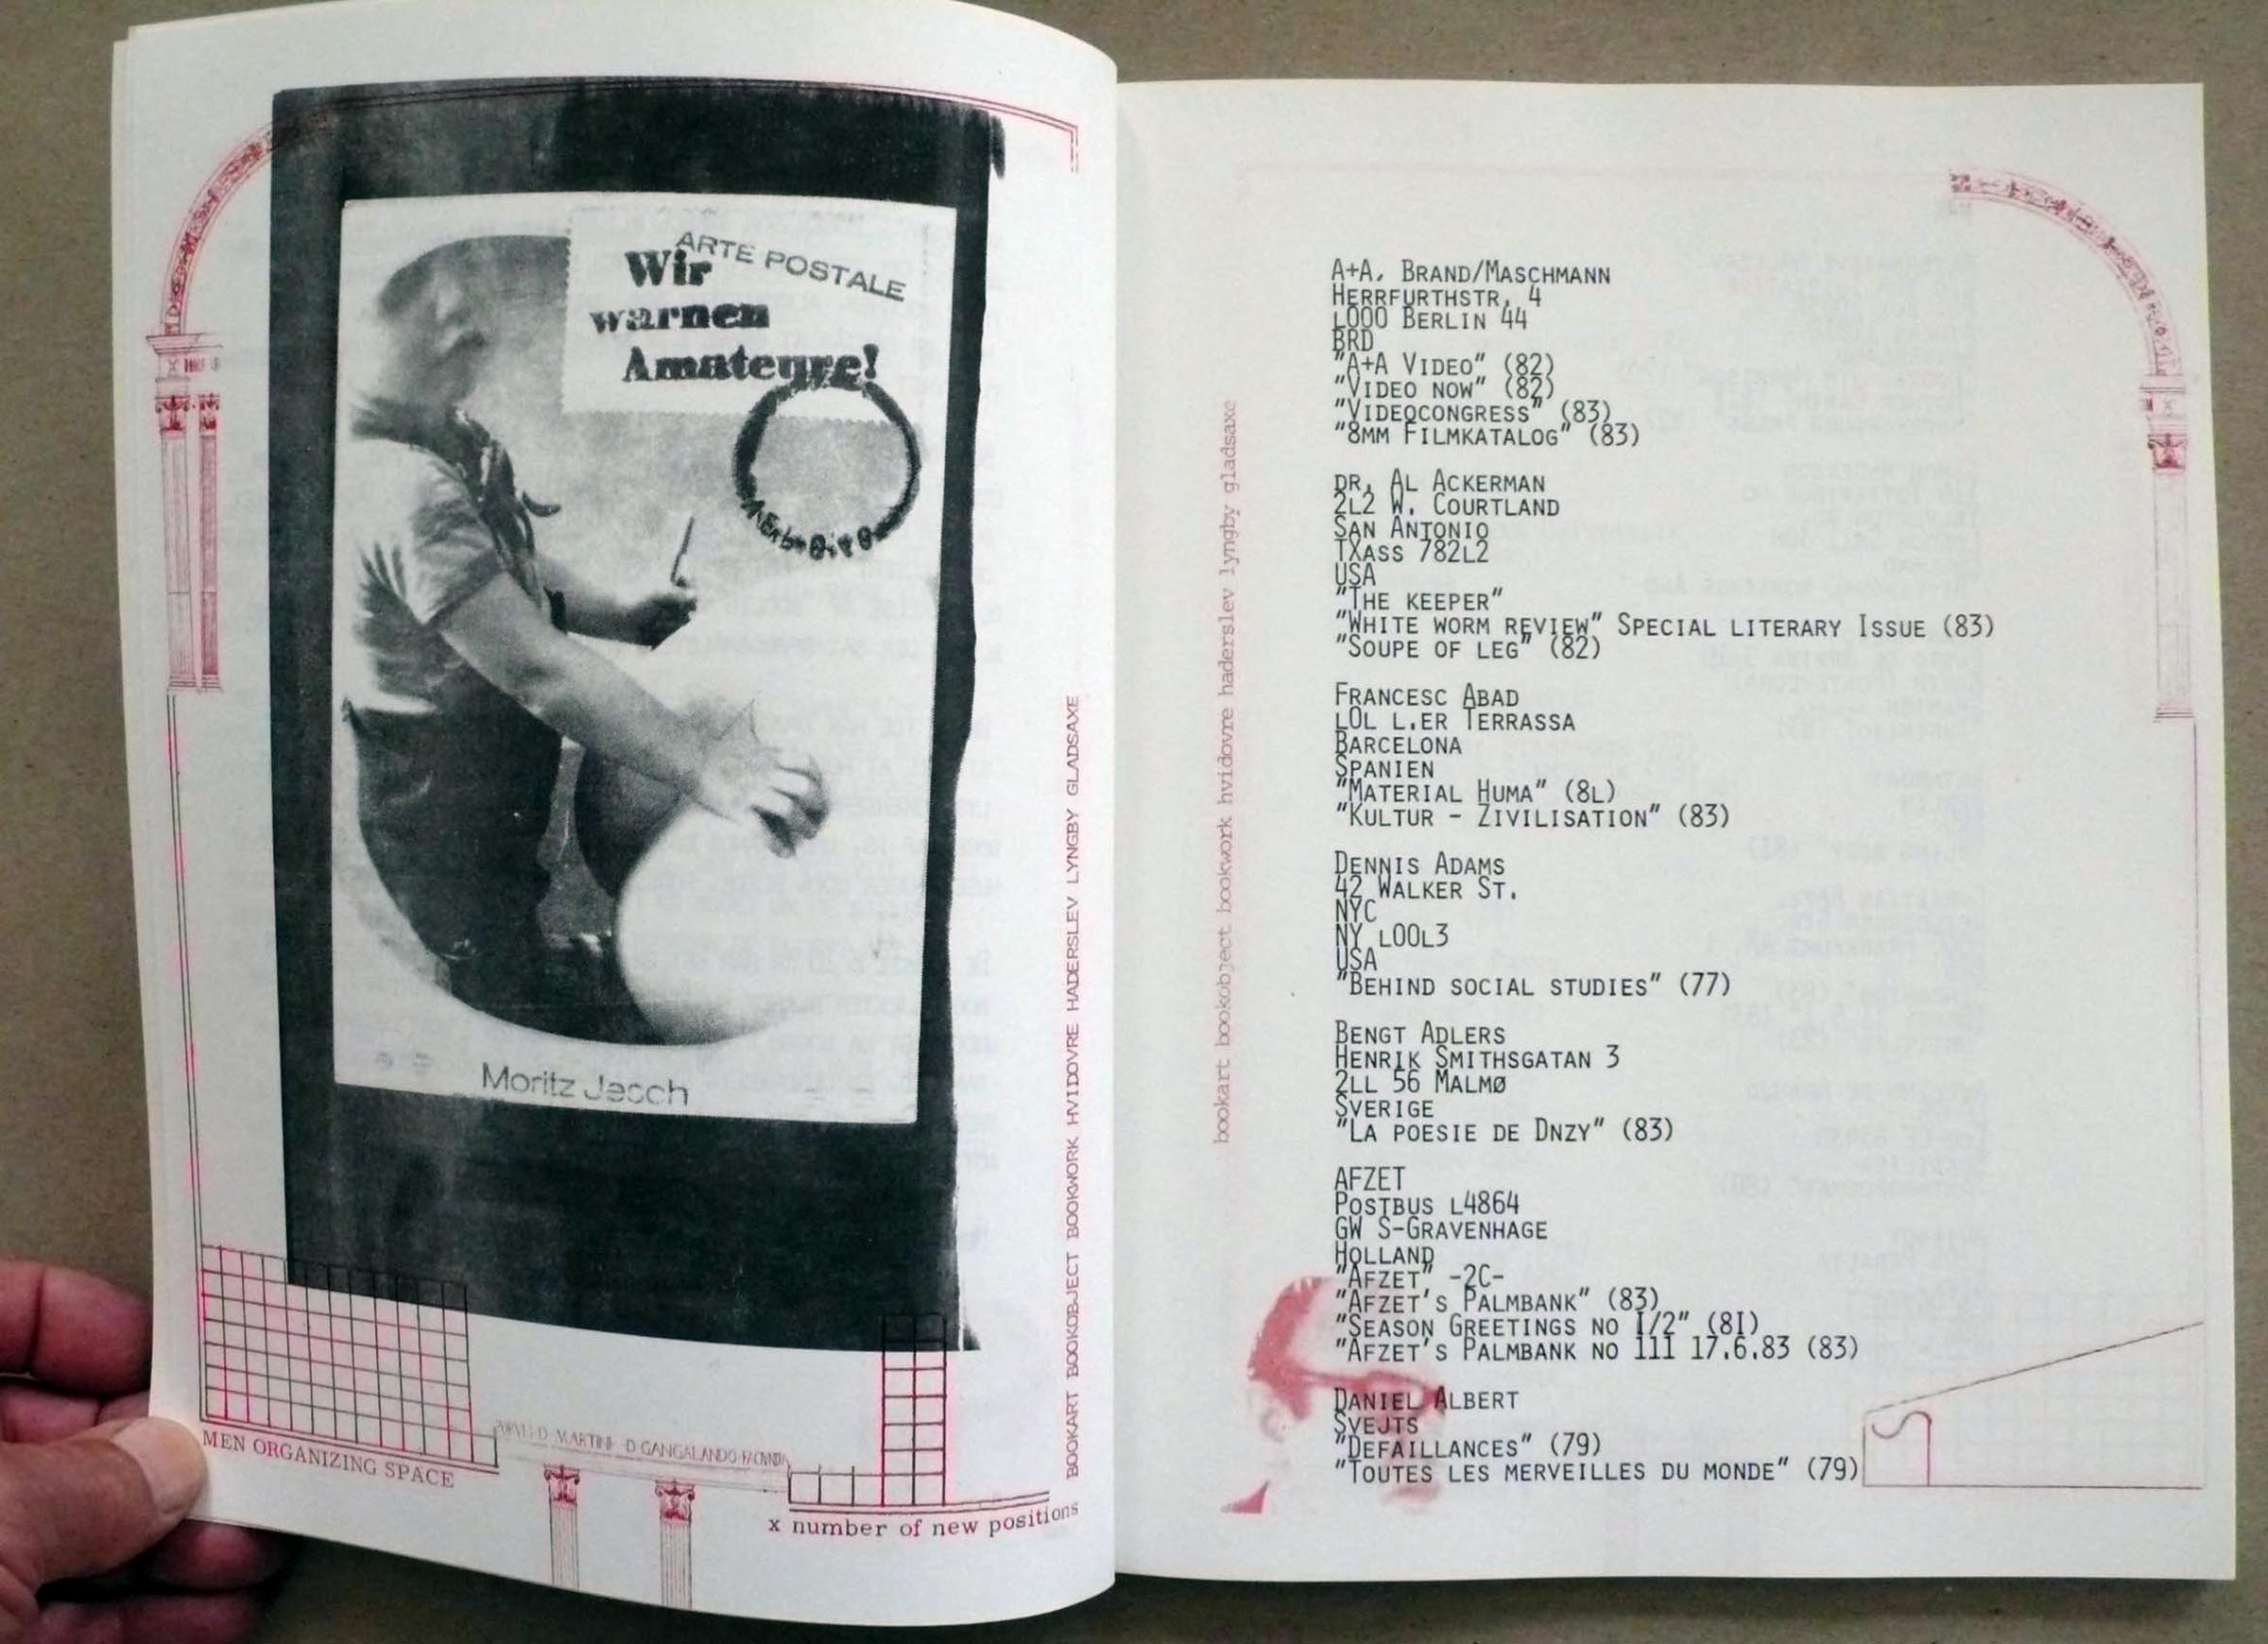 ARTE POSTALE
Wir
warnen
Amateure!
Moritz Jesch
BOOKART BOOKOBJECT BOOKWORK HVIDOVRE HADERSLEV LYNGBY GLADSAXE
MEN ORGANIZING SPACE
MARTINI D GANGALANDO
x number of new positions
bookart bookobject bookwork hvidovre haderslev lyngby gladsaxe
A+A. BRAND/MASCHMANN
HERRFURTHSTR. 4
L000 BERLIN 44
BRD
"A+A VIDEO" (82)
"VIDEO NOW" (82)
"VIDEOCONGRESS" (83)
"8MM FILMKATALOG" (83)
DR. AL ACKERMAN
2L2 W. COURTLAND
SAN ANTONIO
TXASS 782L2
USA
"THE KEEPER"
"WHITE WORM REVIEW" SPECIAL LITERARY ISSUE (83)
"SOUPE OF LEG" (82)
FRANCESC ABAD
LOL L.ER TERRASSA
BARCELONA
SPANIEN
"MATERIAL HUMA" (8L)
"KULTUR - ZIVILISATION" (83)
DENNIS ADAMS
42 WALKER ST.
NYC
NY L00L3
USA
"BEHIND SOCIAL STUDIES" (77)
BENGT ADLERS
HENRIK SMITHSGATAN 3
2LL 56 MALMØ
SVERIGE
"LA POESIE DE DNZY" (83)
AFZET
POSTBUS L4864
GW S-GRAVENHAGE
HOLLAND
"AFZET" -2C-
"AFZET'S PALMBANK" (83)
"SEASON GREETINGS NO I/2" (8I)
"AFZET'S PALMBANK NO 111 17.6.83 (83)
DANIEL ALBERT
SVEJTS
"DEFAILLANCES" (79)
"TOUTES LES MERVEILLES DU MONDE" (79)